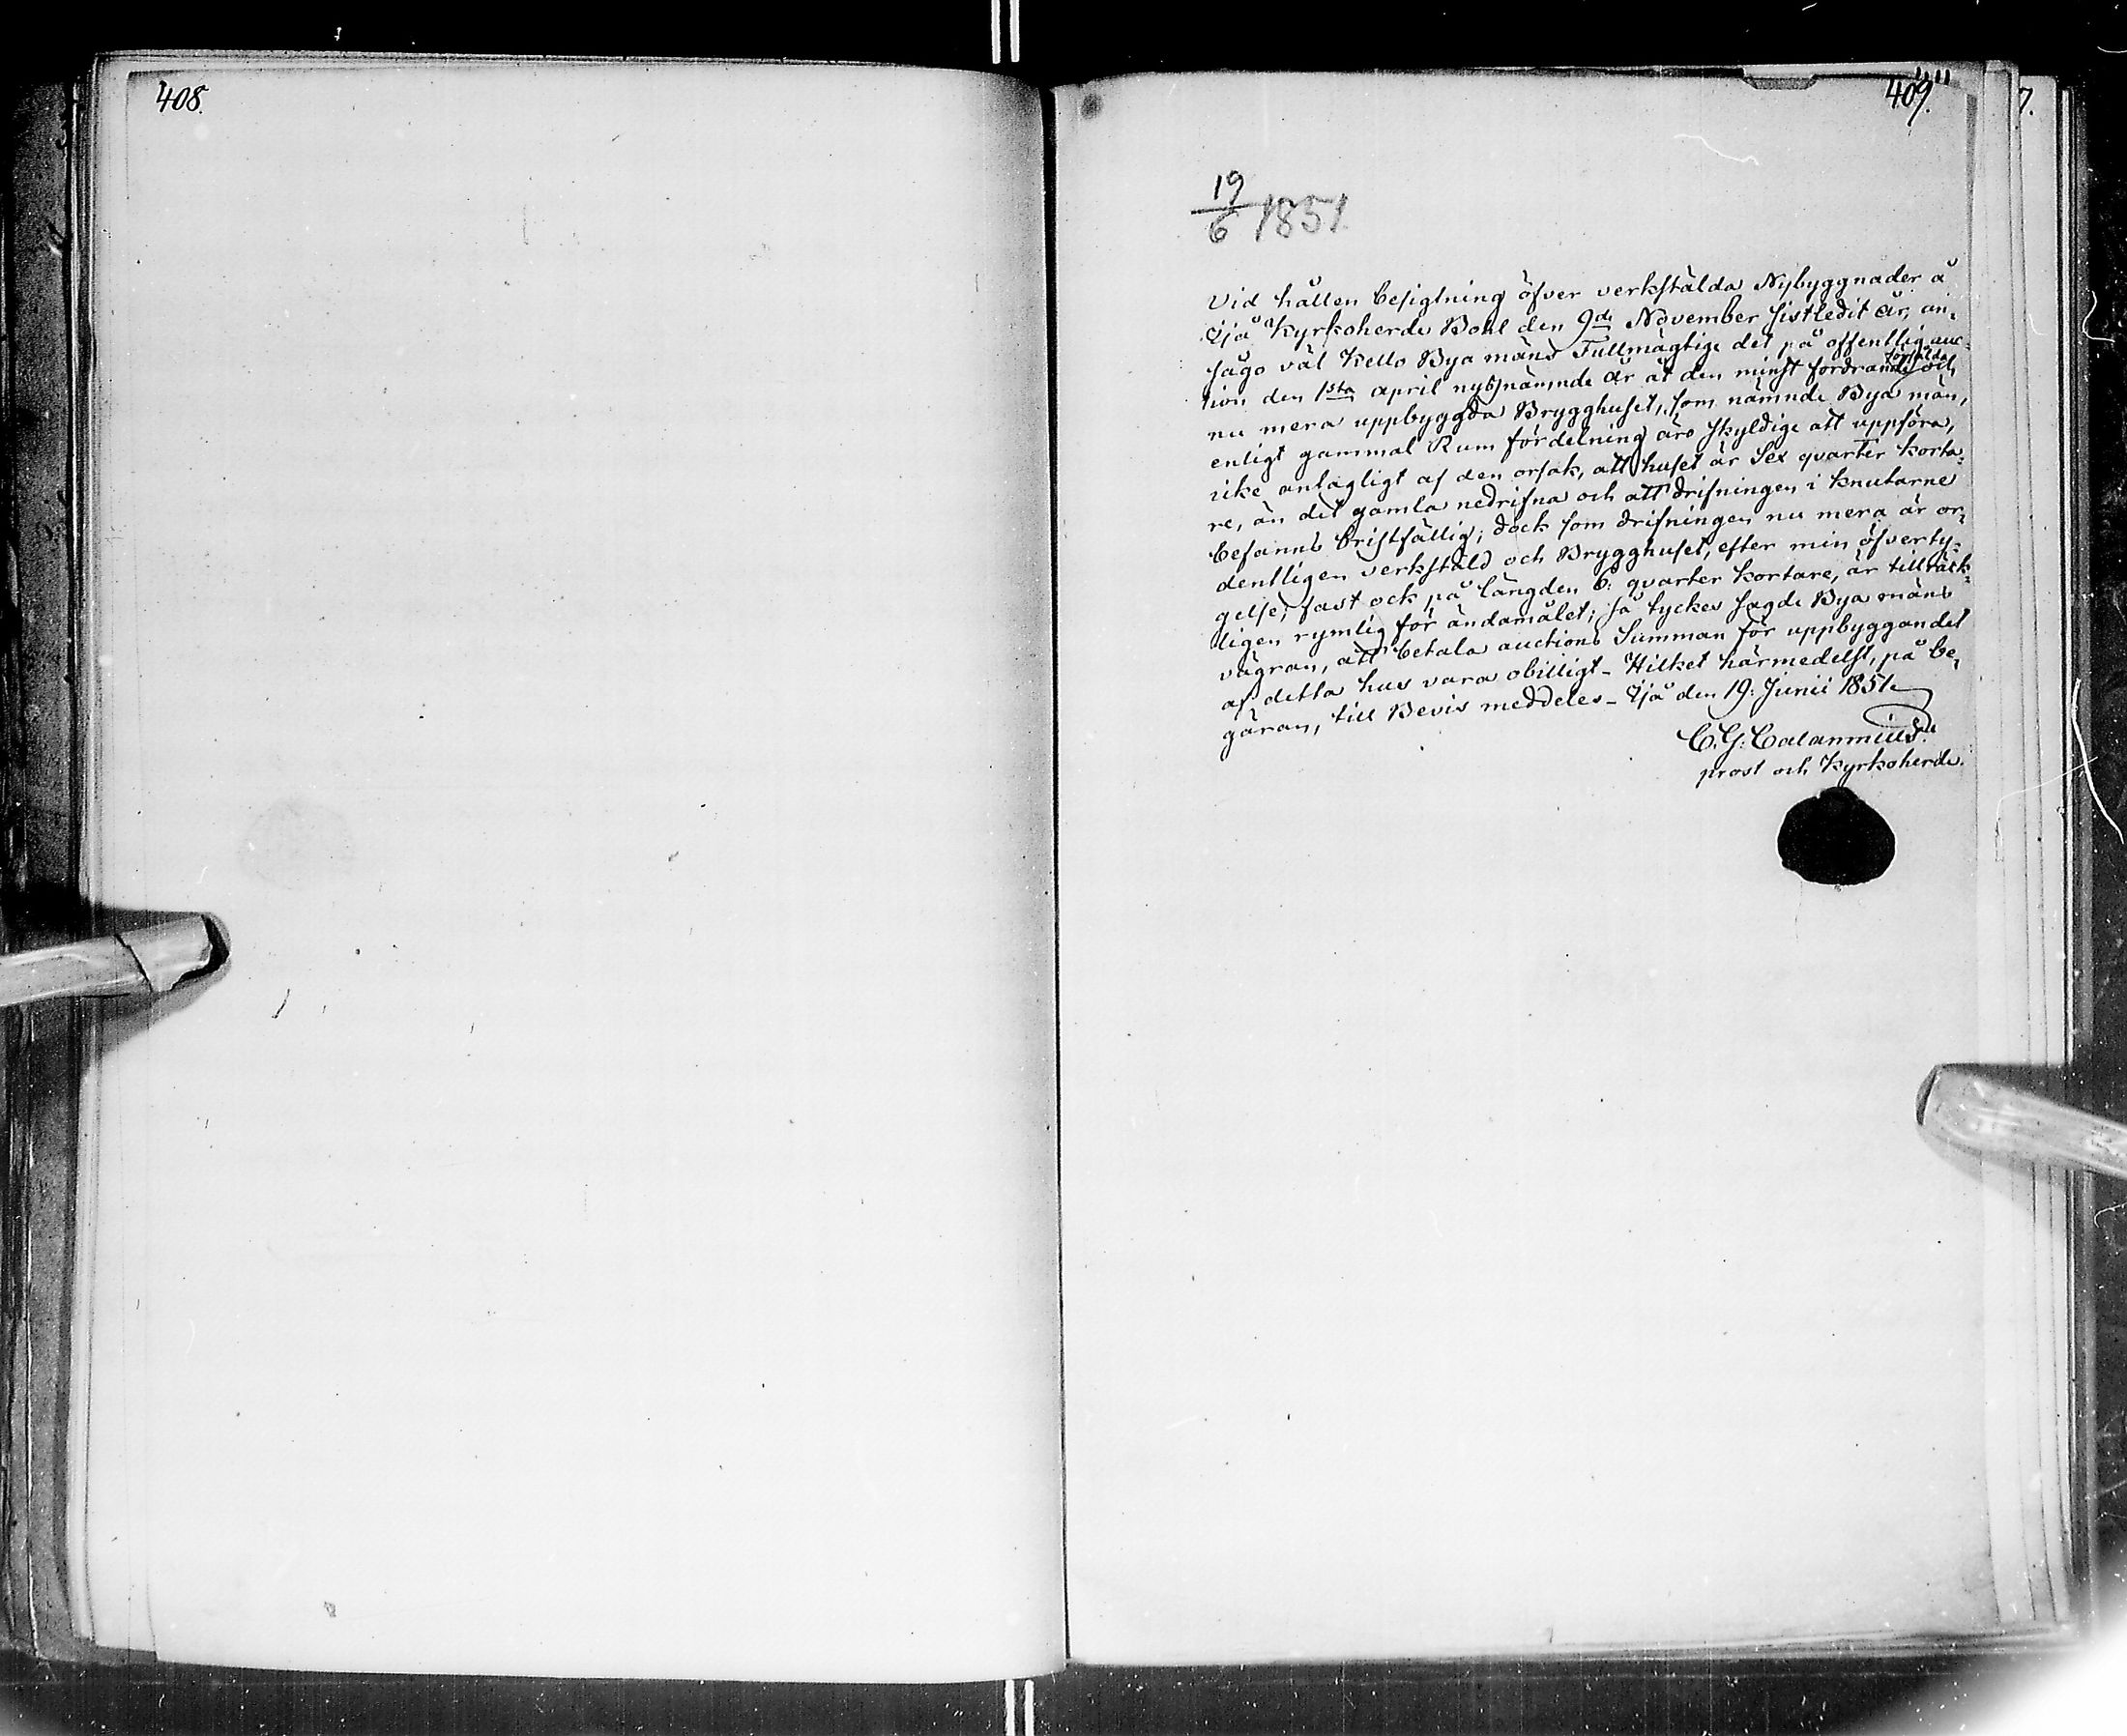 408.
409."
7.
19/6 1851.
Vid hållen besigtning öfver verkstälda Nybyggnader å
Ijå Kyrkoherde Bohl den 9de November sistledit år, an,
sågo väl Kello Bya mäns Fullmägtige det på offentlig auc-
tion den 1sta april nyssnämnde år åt den minst fordrande försålda och
nu mera uppbyggda Brygghuset, som nämnde Bya män,
enligt gammal Rum fördelning äro skyldige att uppföra,
icke antagligt af den orsak, att huset är Sex quarter korta-
re, än det gamla nedrifna och att drifningen i knutarne
befanns bristfällig; dock som drifningen nu mera är or,
dentligen verkstäld och Brygghuset, efter min öfverty-
gelse, fast ock på längden 6. quarter kortare, är tillräck-
ligen rymlig för ändamålet; så tyckes sagde Bya mäns
vägran, att betala auctions Summan för uppbyggandet
af detta hus vara obilligt - Hilket härmedelst, på be,
gäran, till Bevis meddeles - Ijå den 19. Junii 1851.
C. G. Calamnius.
prost och Kyrkoherde.